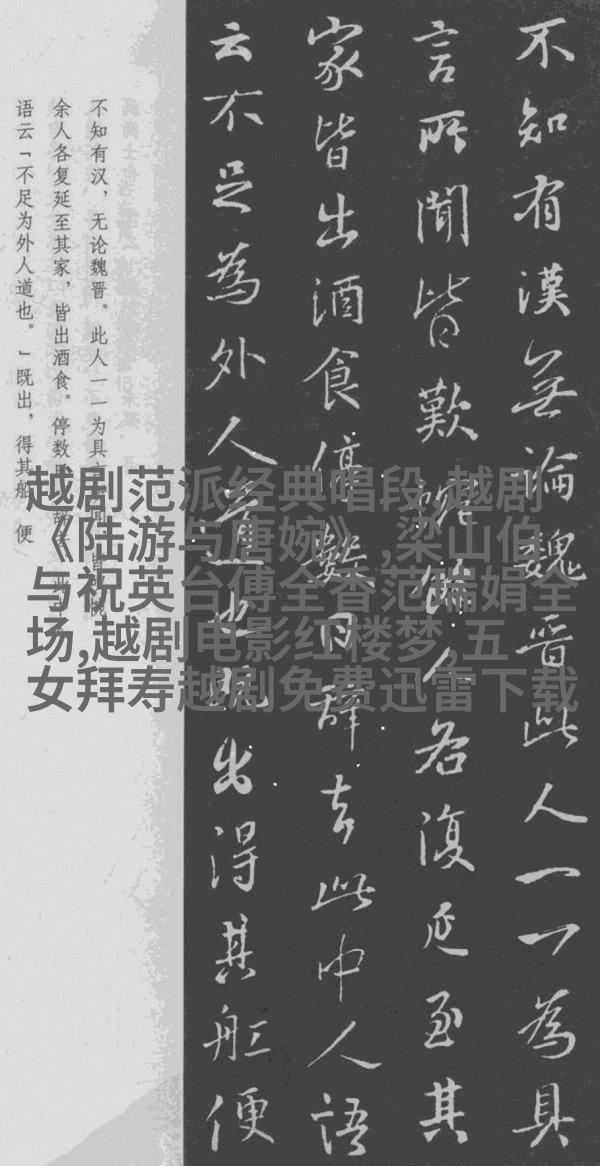 不知有漢無論魏晋此人一一為具
言所聞皆歎惋餘人各復延至其
家皆出酒食停數日辭去此中人語
云不足為外人道也既出得其舡便
不知有汉，无论魏晋。此人一一为具
余人各复延至其家，皆出酒食。停数
语云「不足为外人道也。」既出，得其船，便
越剧范派经典唱段,越剧
《陆游与唐婉》,梁山伯
与祝英台傅全香范瑞娟全
场,越剧电影红楼梦,五
女拜寿越剧免费迅雷下载